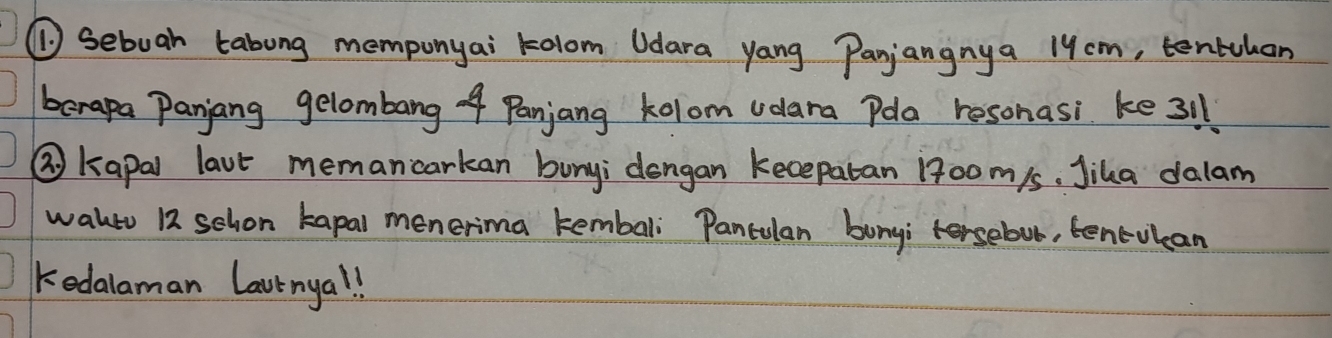 ①. Sebuah tabung mempunyai kolom Udara yang Panjangnya 14 cm, tentukan
berapa Panjang gelombang & Panjang kolom udara Pda resonasi ke 3!!
②. Kapal laut memancarkan bunyi dengan kecepatan 1700 m/s. Jika dalam
waktu 12 sekon kapal menerima kembali Pantulan bunyi tersebut, tentukan
Kedalaman Lautnya!!